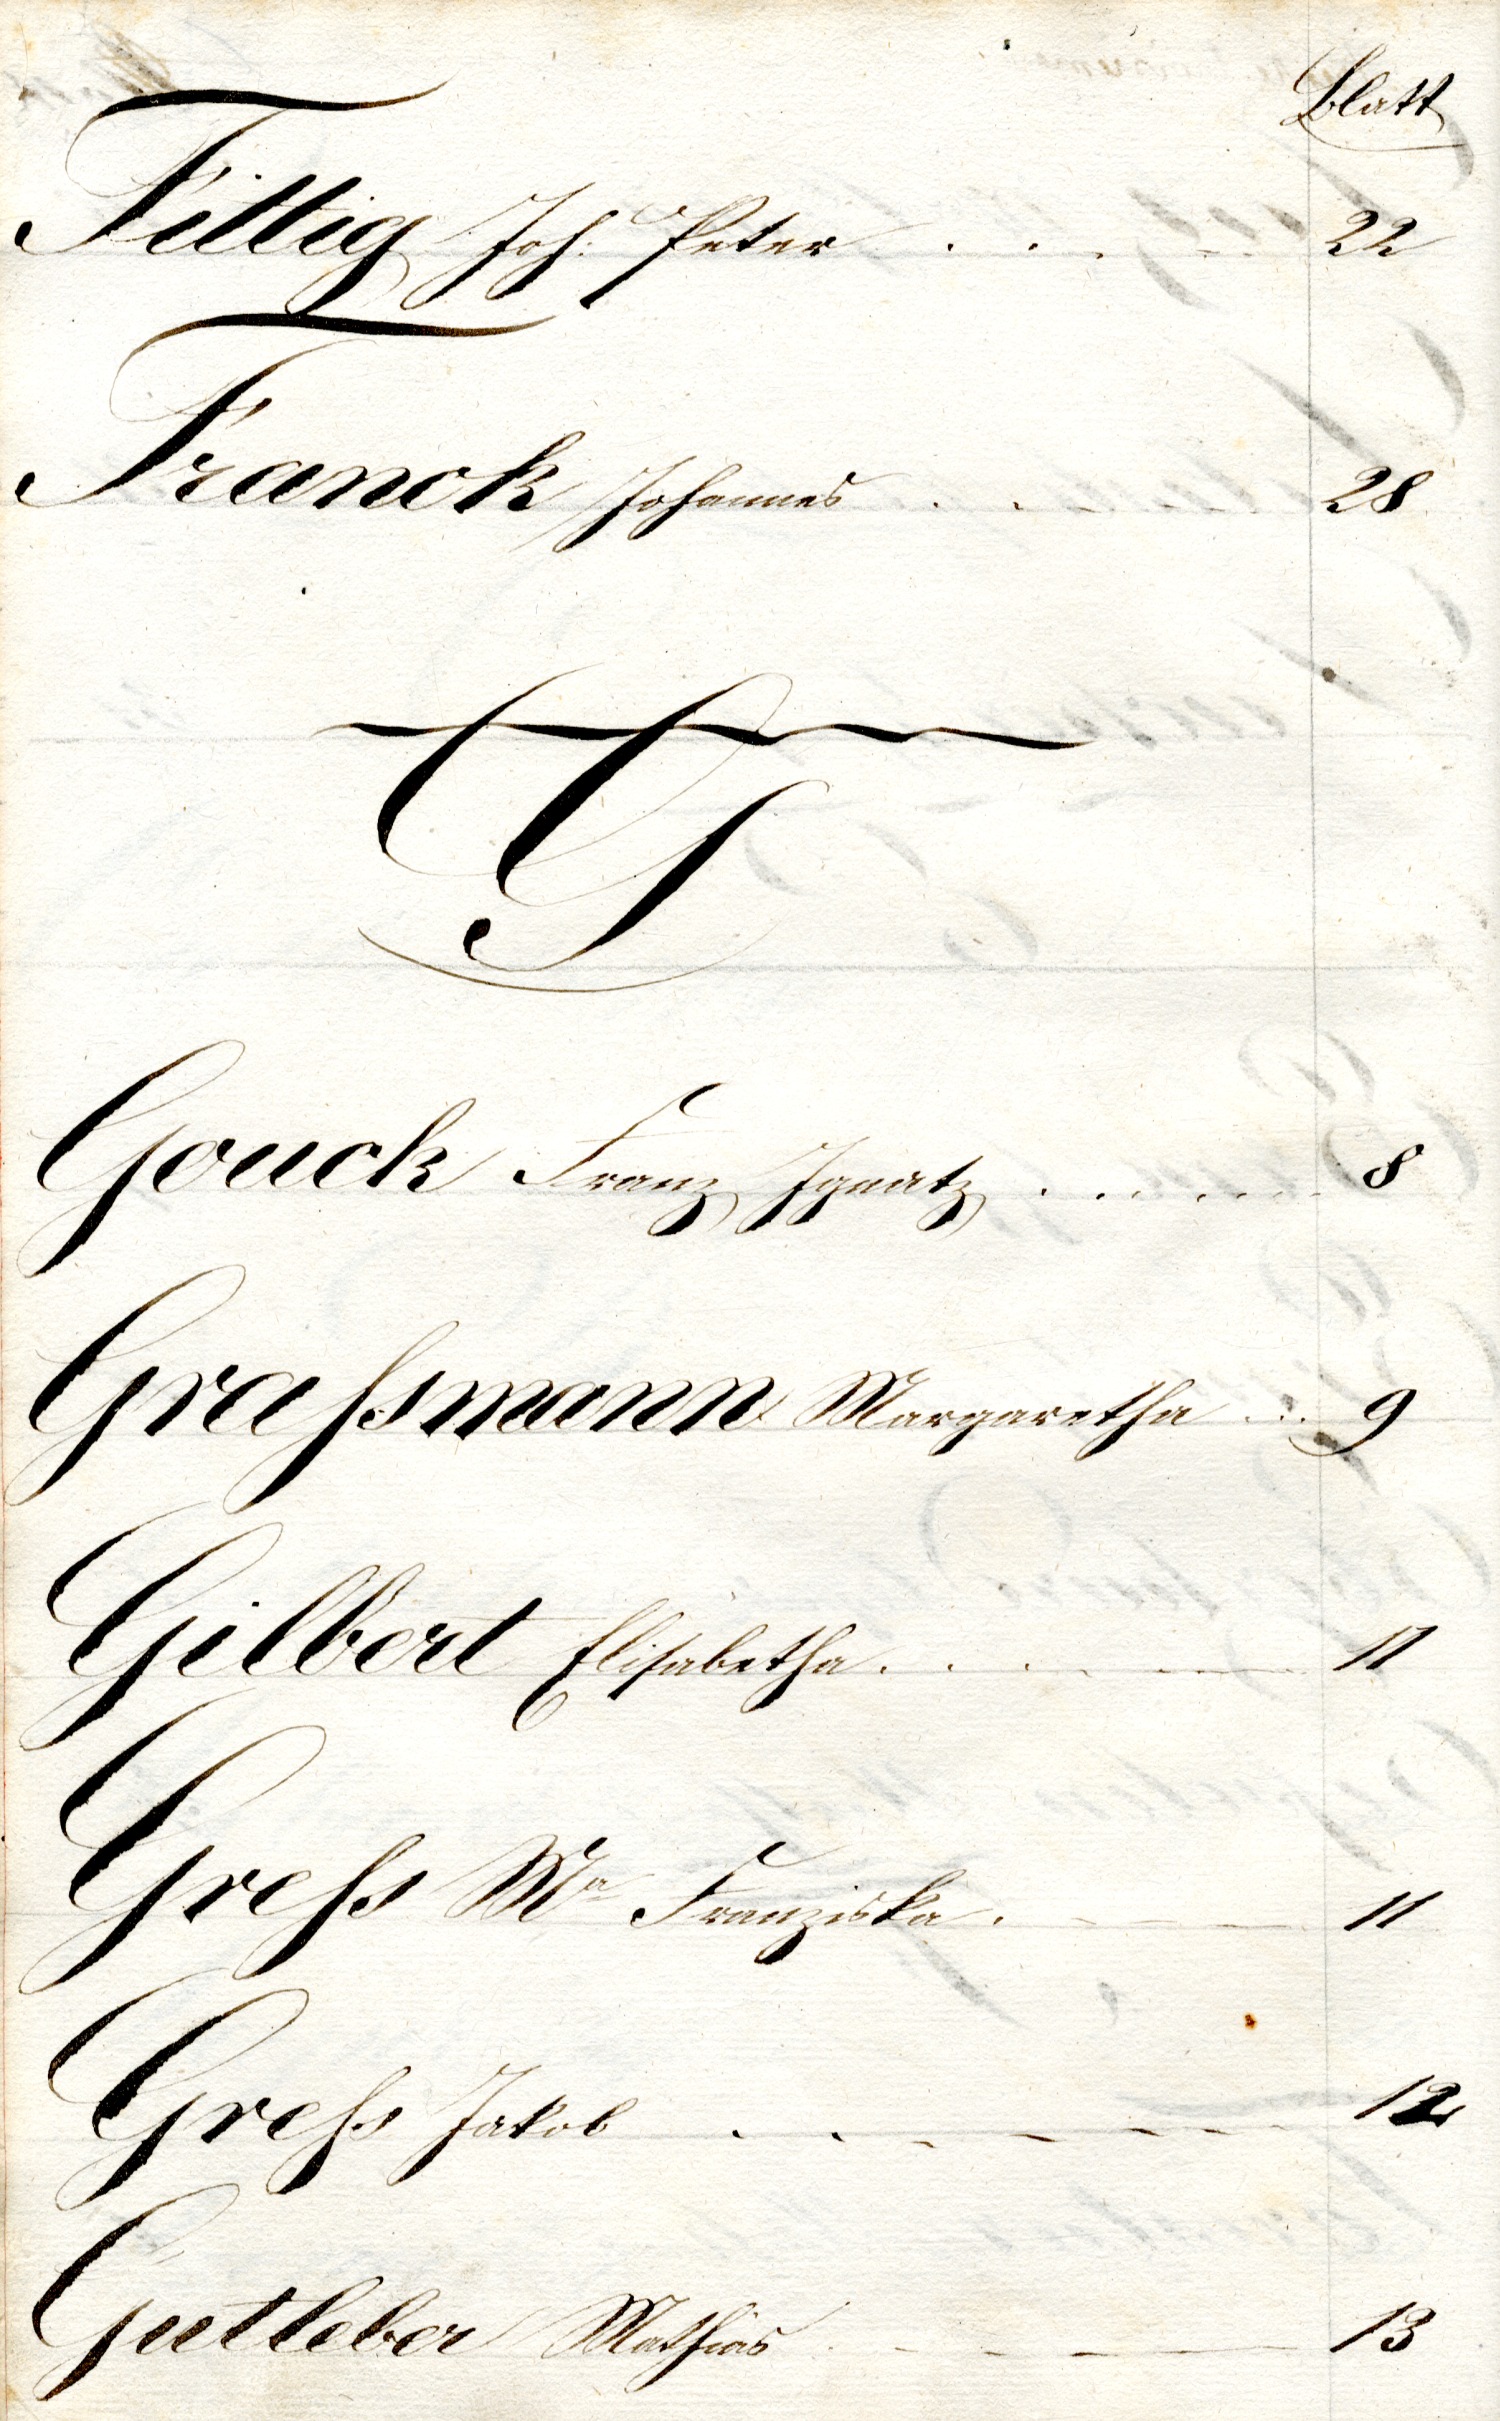 Blatt
Fittig Joh: Peter . . . . 22
Franck Johannes . . . 28
G
Gouck Franz Ignatz . . . . . . 8
Graßmann Margaretha . . . 9
Gilbert Elisabetha . . . . 11
Greß Ma Franziska . . . . 11
Greß Jakob . . . . . . 12
Gutleber Mathias . . . . 13